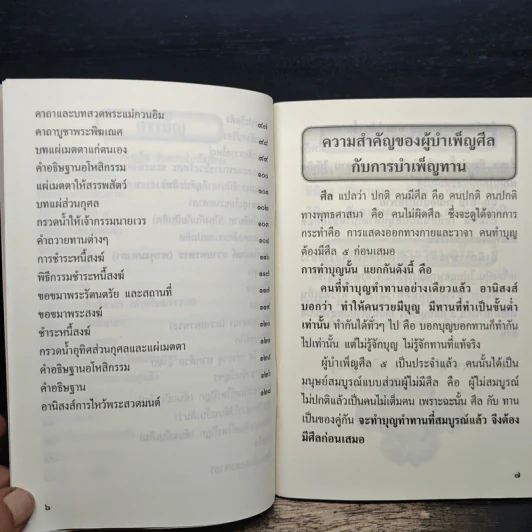 คาถาและบทสวดพระแม่กวนอิม ๙๗
คาถาบูชาพระพิฆเณศ ๙๘
บทแผ่เมตตาแก่ตนเอง ๙๙
คำอธิษฐานอโหสิกรรม ๑๐๐
แผ่เมตตาให้สรรพสัตว์ ๑๐๑
บทแผ่ส่วนกุศล ๑๐๒
กรวดน้ำให้เจ้ากรรมนายเวร ๑๐๓
คำถวายทานต่างๆ
การชำระหนี้สงฆ์
พิธีกรรมชำระหนี้สงฆ์
ขอขมาพระรัตนตรัย และสถานที่
ขอขมาพระสงฆ์
ชำระหนี้สงฆ์
กรวดน้ำอุทิศส่วนกุศลและแผ่เมตตา
คำอธิษฐานอโหสิกรรม
คำอธิษฐาน
อานิสงส์การไหว้พระสวดมนต์
๖
ความสำคัญของผู้บำเพ็ญศีล
กับการบำเพ็ญทาน
ศีล แปลว่า ปกติ คนมีศีล คือ คนปกติ คนปกติ
ทางพุทธศาสนา คือ คนไม่ผิดศีล ซึ่งจะดูได้จากการ
กระทำคือ การแสดงออกทางกายและวาจา คนทำบุญ
ต้องมีศีล ๕ ก่อนเสมอ
การทำบุญนั้น แยกกันดังนี้ คือ
คนที่ทำบุญทำทานอย่างเดียวแล้ว อานิสงส์
บอกว่า ทำให้คนรวยมีบุญ มีทานที่ทำเป็นขั้นต่ำ
เท่านั้น ทำกันได้ทั่วๆ ไป คือ บอกบุญบอกทานก็ทำกัน
ไปเท่านั้น แต่ไม่รู้จักบุญ ไม่รู้จักทานที่แท้จริง
ผู้บำเพ็ญศีล ๕ เป็นประจำแล้ว คนนั้นได้เป็น
มนุษย์สมบูรณ์แบบส่วนผู้ไม่มีศีล คือ ผู้ไม่สมบูรณ์
ไม่ปกติแล้วเป็นคนไม่เต็มคน เพราะฉะนั้น ศีล กับ ทาน
เป็นของคู่กัน จะทำบุญทำทานที่สมบูรณ์แล้ว จึงต้อง
มีศีลก่อนเสมอ
๗